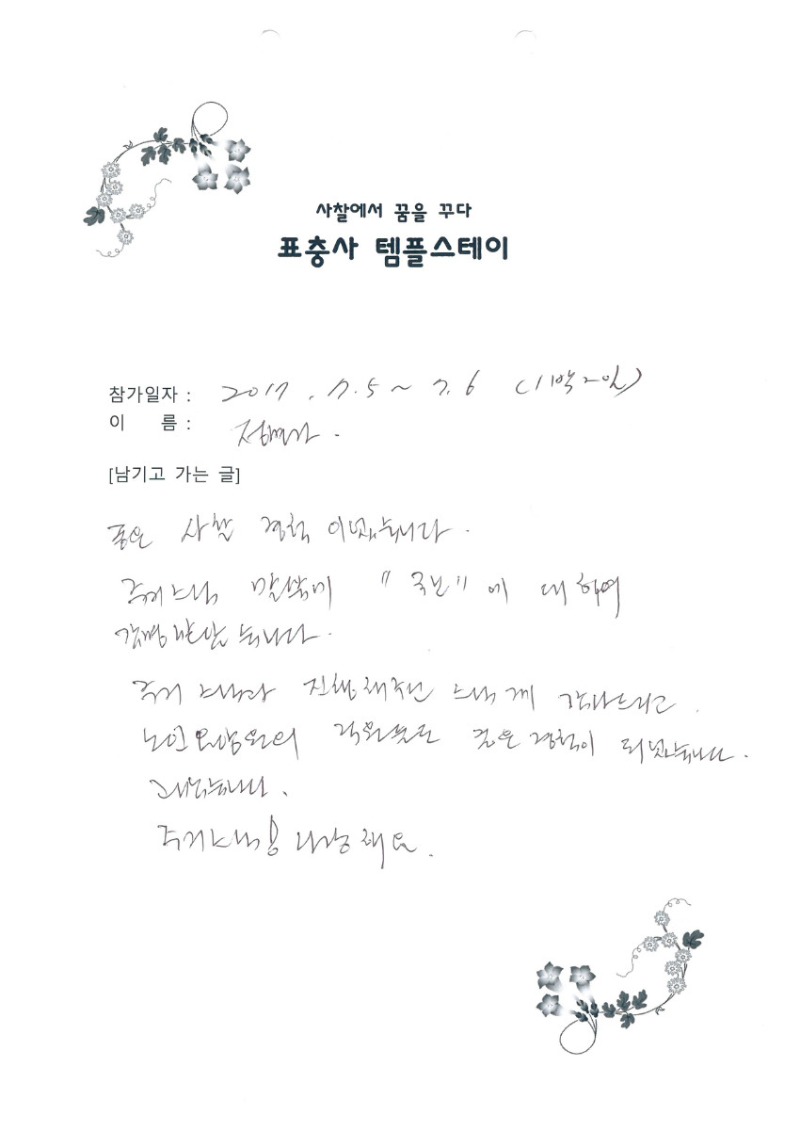 사찰에서 꿈을 꾸다
표충사 템플스테이
참가일자 : 2017 . 7. 5 ~ 7. 6 (1박2일)
이 름 :
[남기고 가는 글]
좋은 사찰 경험 이었습니다.
주지스님 말씀에 " " 에 대하여
감명 받았습니다.
주지 스님과 진행해주신 스님께 감사드리고.
노인요양원의 직원분들 좋은 경험이 되었습니다.
고맙습니다.
주지스님! 사랑해요.